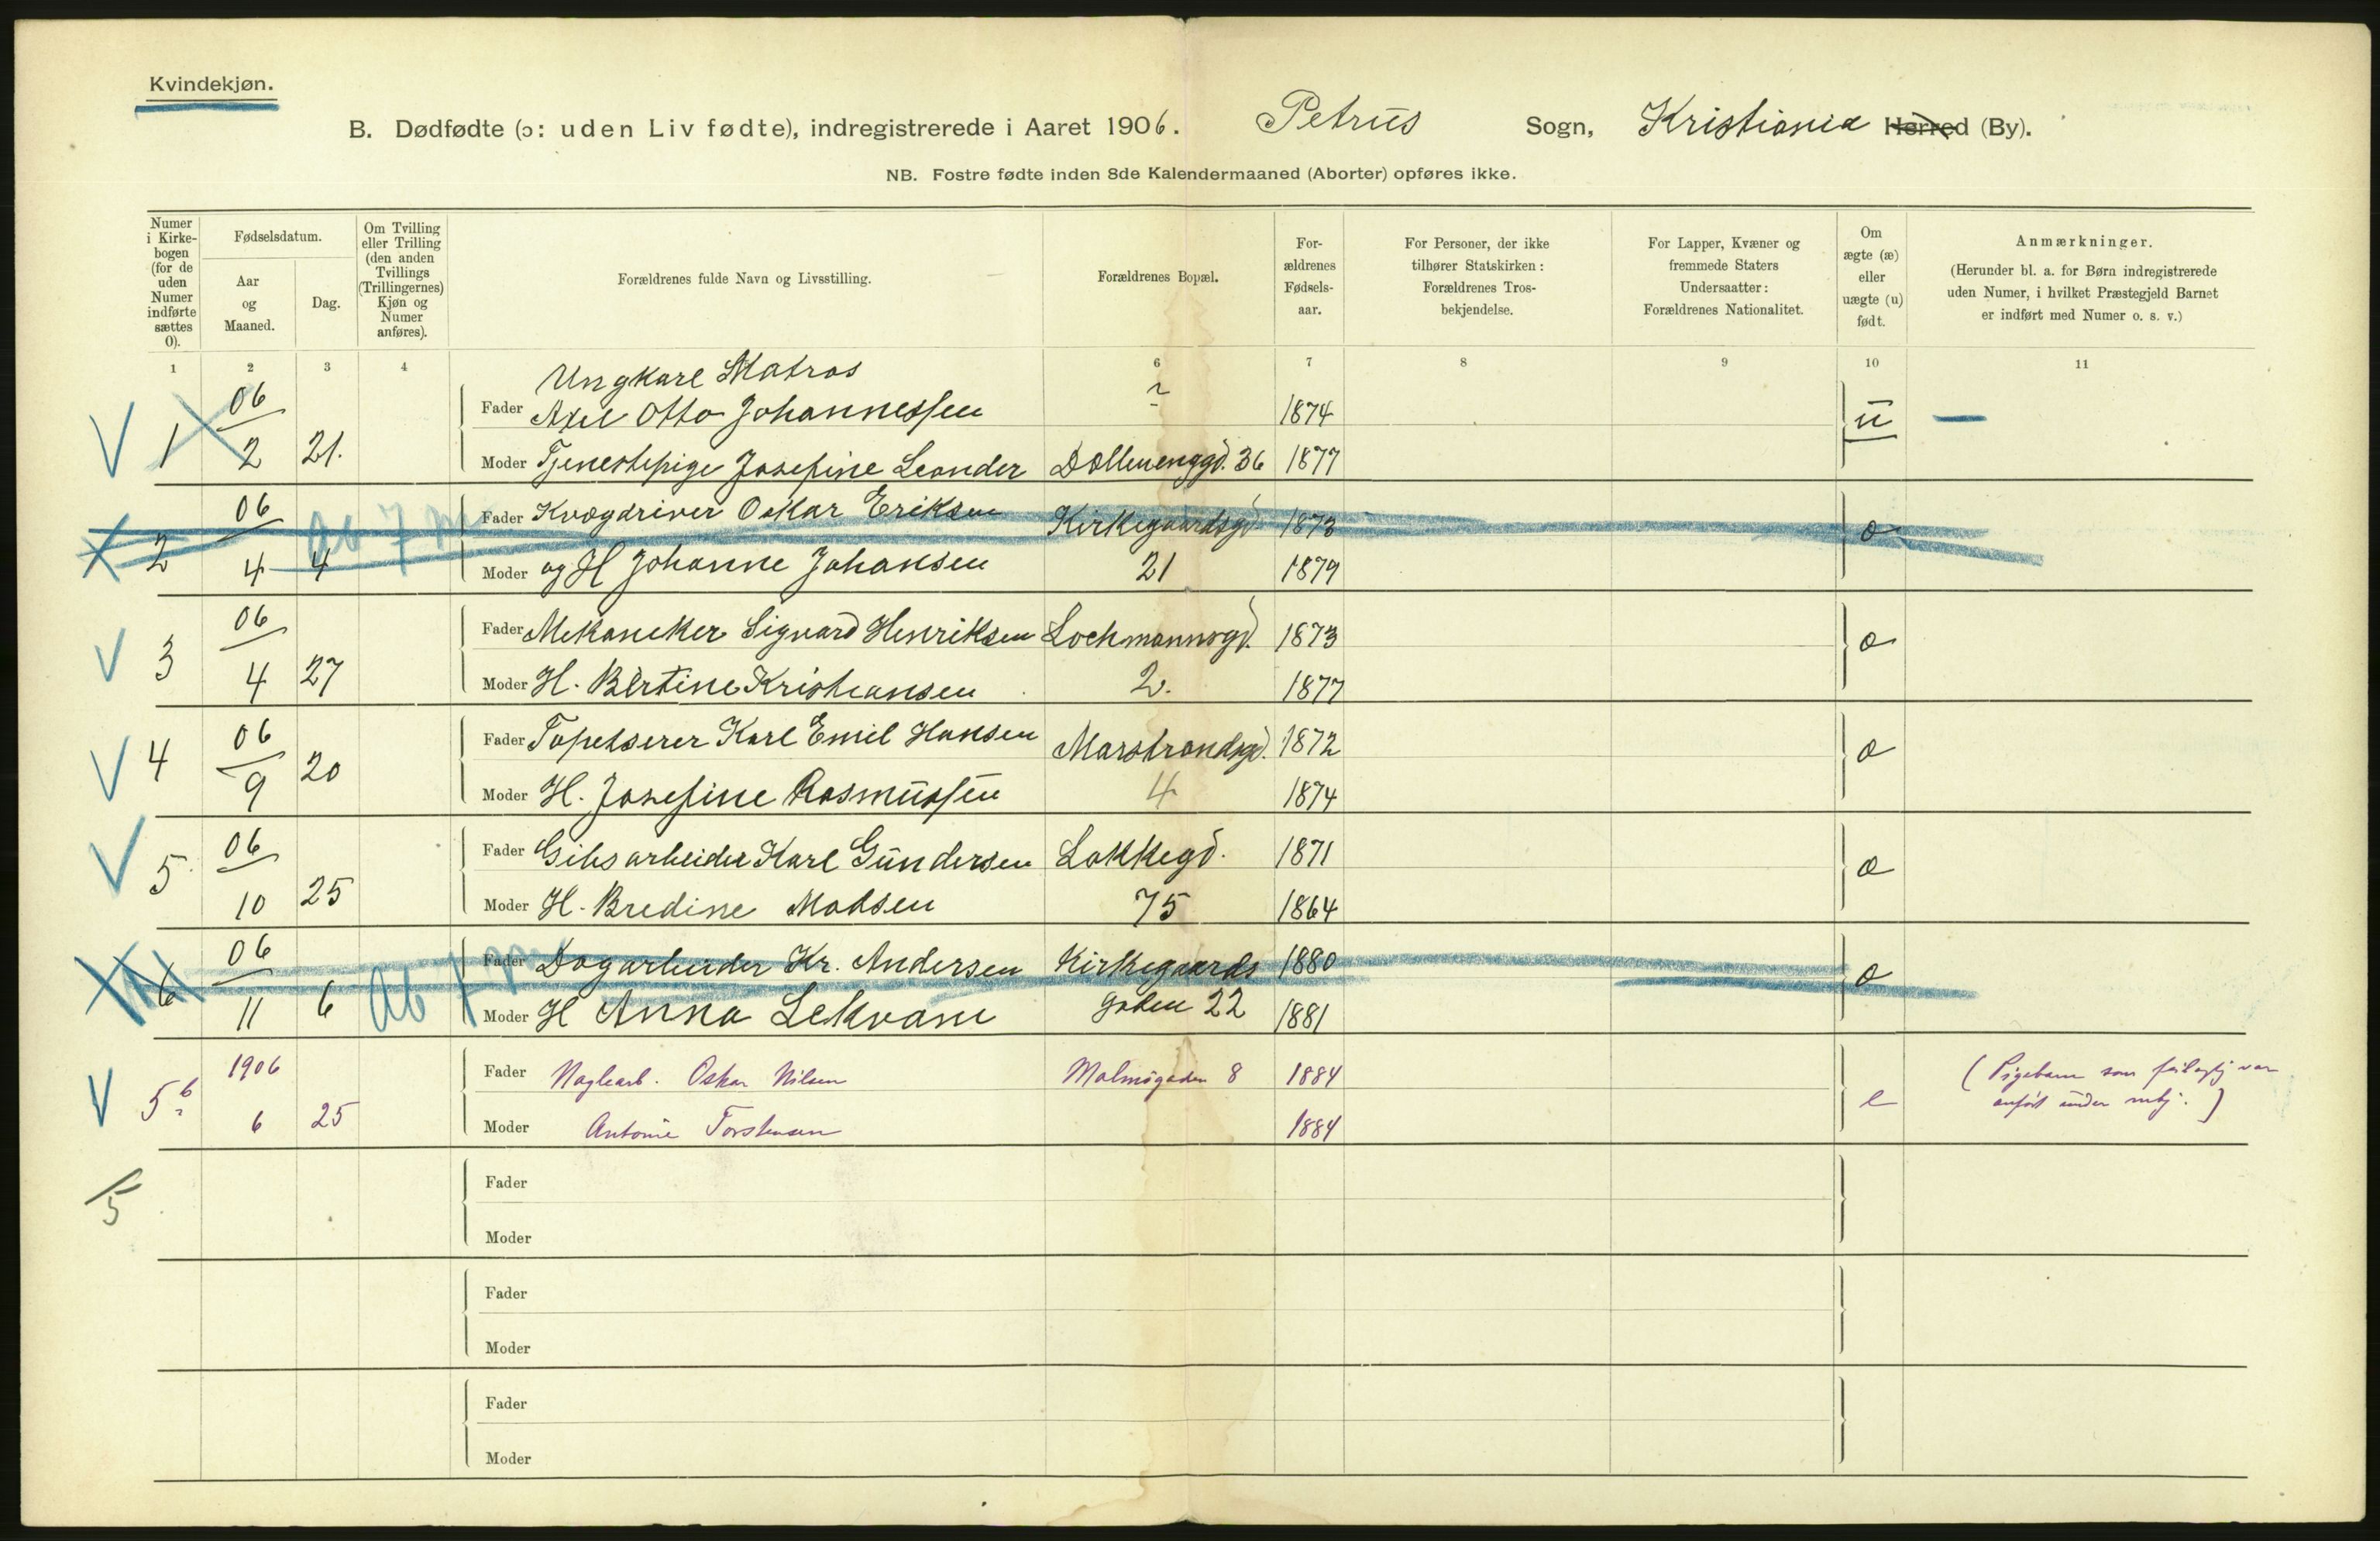 Kvindekjøn.
B. Dødfødte (ɔ: uden Liv fødte), indregistrerede i Aaret 1906. Petrus Sogn, Kristiania Herred (By).
NB. Fostre fødte inden 8de Kalendermaaned (Aborter) opføres ikke.
Numer i Kirkebogen (for de uden Numer indførte sættes 0).
Fødselsdatum.
Aar og Maaned.
Dag.
Om Tvilling eller Trilling (den anden Tvillings (Trillingernes) Kjøn og Numer anføres).
Forældrenes fulde Navn og Livsstilling.
Forældrenes Bopæl.
Forældrenes Fødselsaar.
For Personer, der ikke tilhører Statskirken: Forældrenes Trosbekjendelse.
For Lapper, Kvæner og fremmede Staters Undersaatter: Forældrenes Nationalitet.
Om ægte (æ) eller uægte (u) født.
Anmærkninger.
(Herunder bl. a. for Børn indregistrerede uden Numer, i hvilket Præstegjeld Barnet er indført med Numer o. s. v.)
1 2 3 4 6 7 8 9 10 11
Ungkarl Matros
06 Fader Axel Otto Johannessen ? 1874 u —
1 2 21. Moder Tjenestepige Josefine Leander Dællenenggd. 36 1877
06 Ab 7 m Fader Kvægdriver Oskar Eriksen Kirkegaardsgd 1873 æ
2 4 4 Moder og H Johanne Johansen 21 1879
06 Fader Mekaneker Sigvard Henriksen Lochmannsgd. 1873 æ
3 4 27 Moder H. Bertine Kristiansen 2. 1877
06 Fader Tapetserer Karl Emil Hansen Marstrandsgd. 1872 æ
4 9 20 Moder H. Josefine Rasmussen 4 1874
06 Fader Gibsarbeider Karl Gundersen Løkkegd. 1871 æ
5 10 25 Moder H. Bredine Madsen 75 1864
06 Fader Dagarbeider Kr. Andersen Kirkegaards 1880 æ
6 11 6 Ab Moder H Anna Lekvam gaden 22 1881
1906 Fader Naglearb. Oskar Nilsen Malmøgaden 8 1884 (Pigebarn som feilagtig var
5 b 6 25 Moder Antonie Torstensen 1884 anført under mkj.)
5 Fader
Moder
Fader
Moder
Fader
Moder